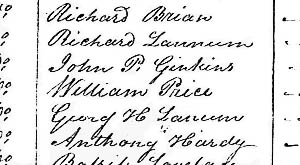 Richard Brian
Richard Lannum
John P. Ginkins
William Price
Georg H Lanum
Anthony Hardy